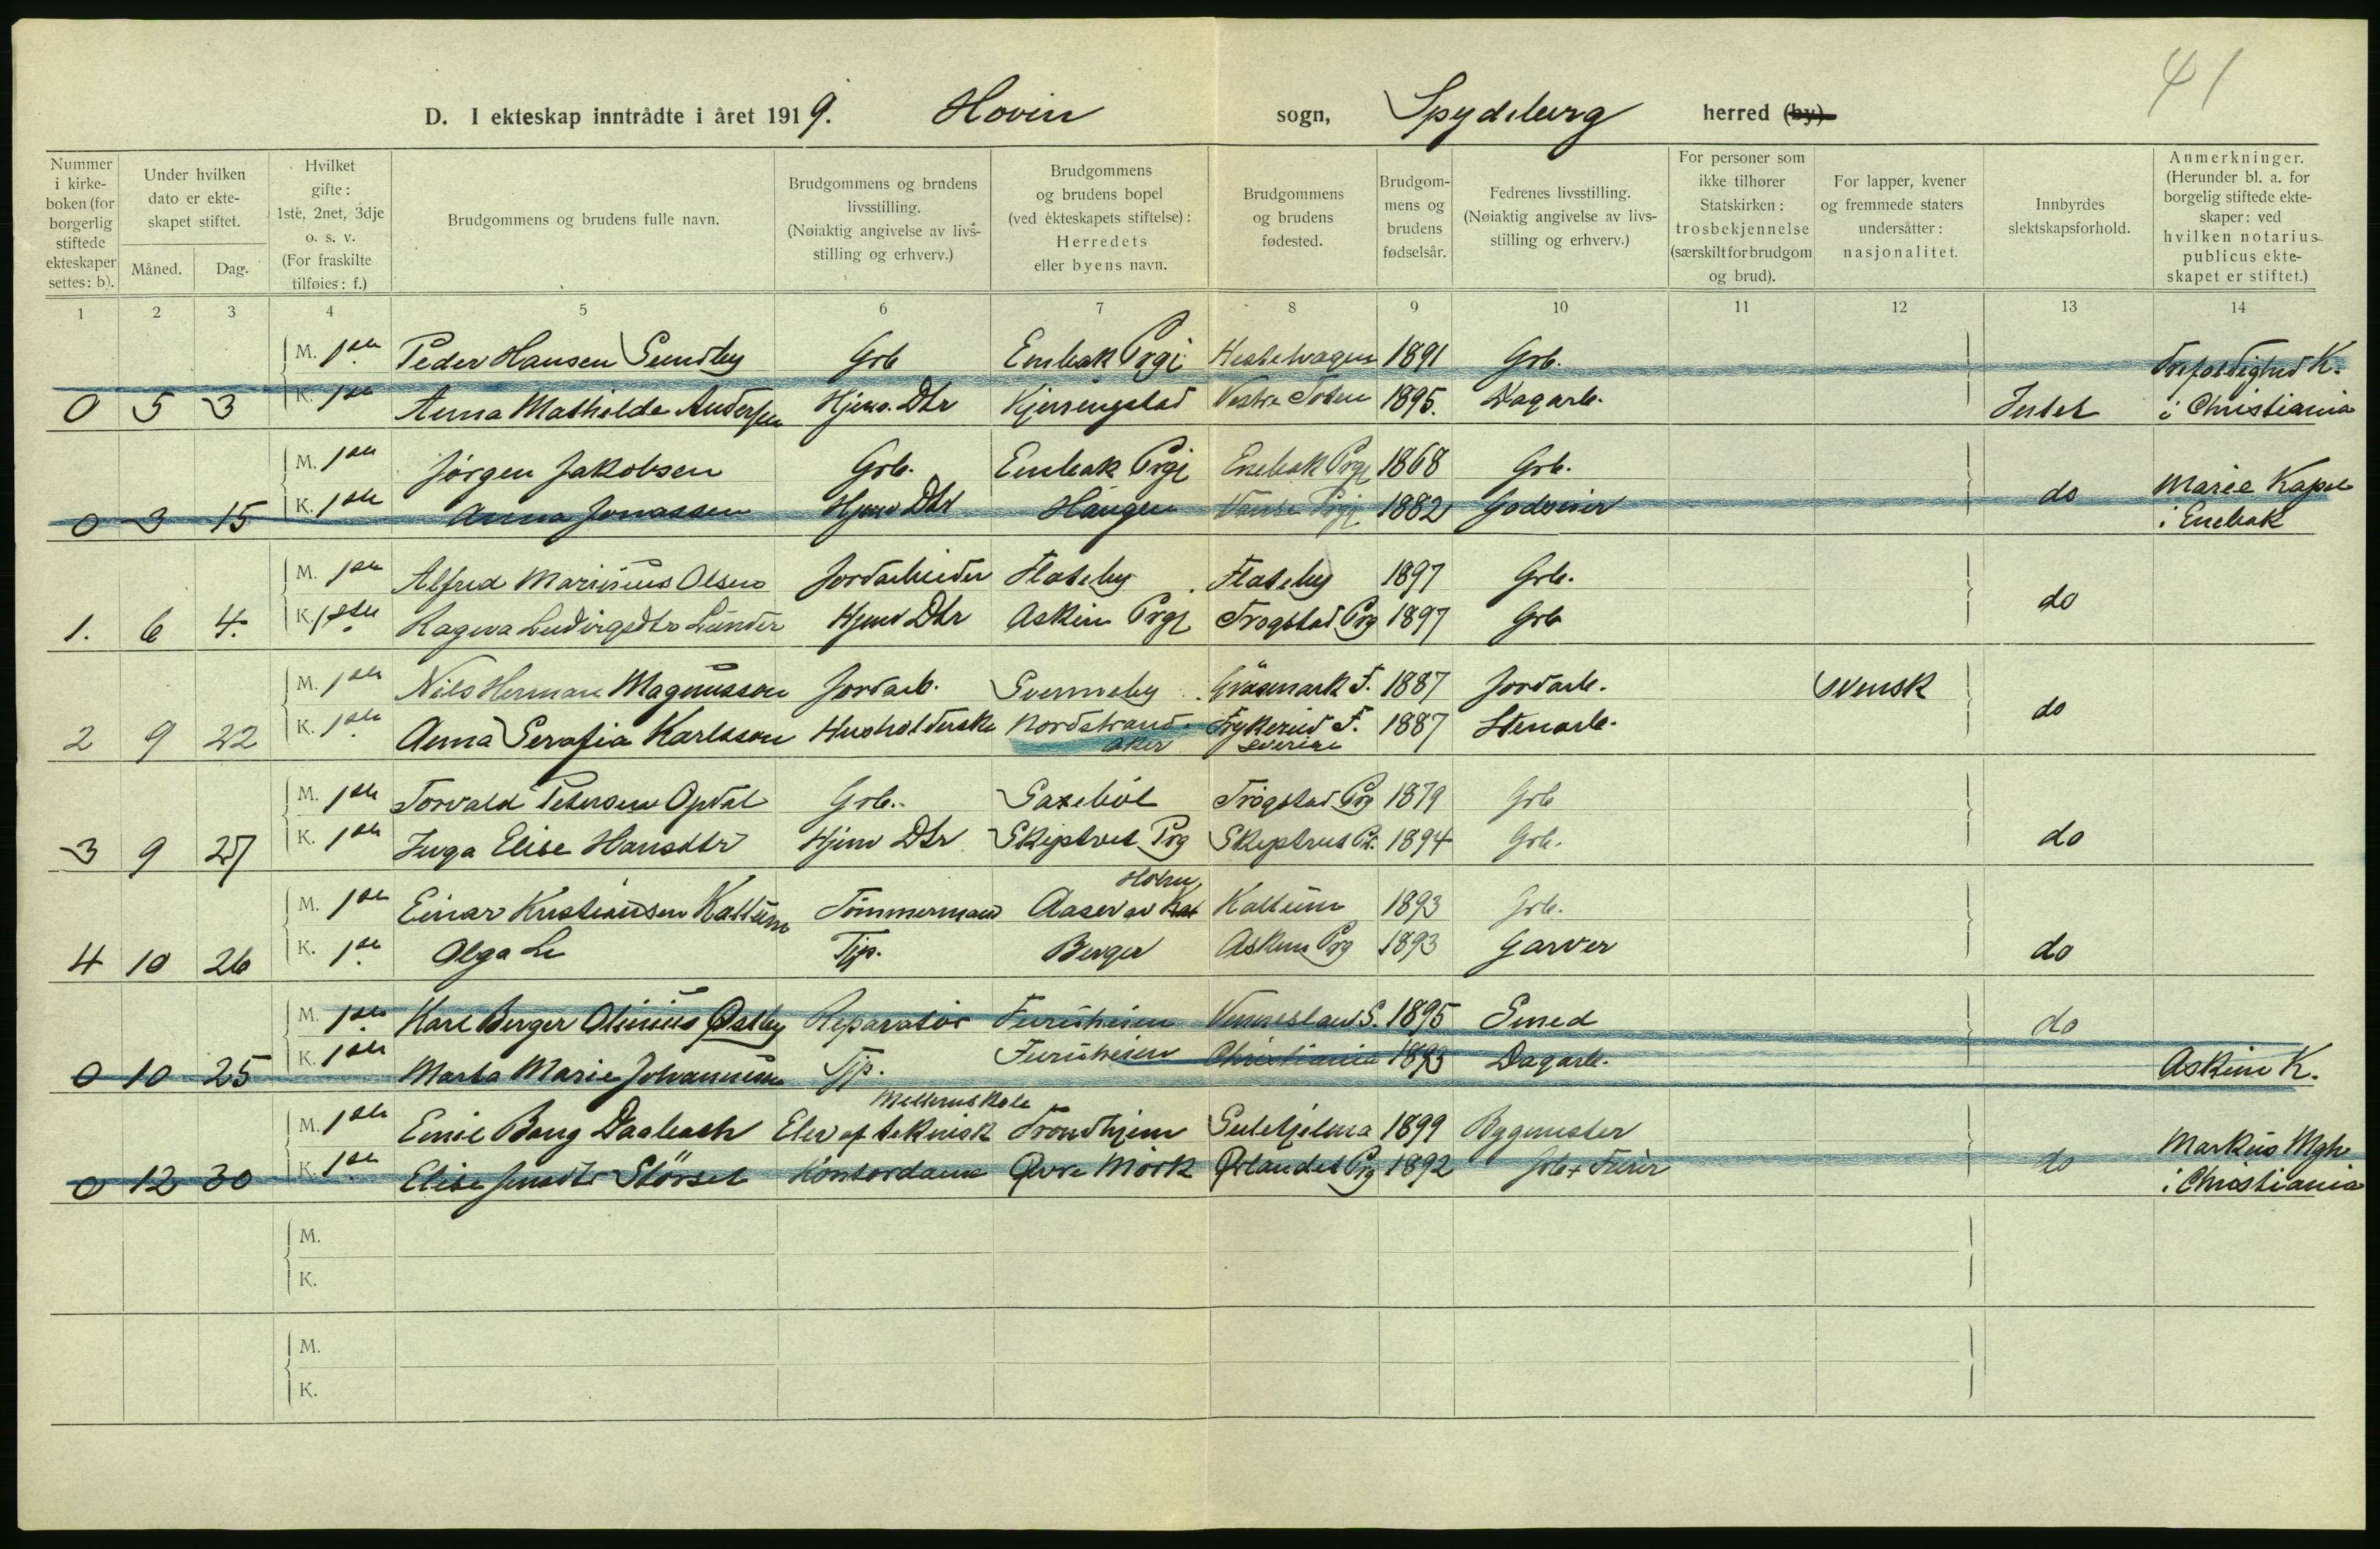 41
D. I ekteskap inntrådte i året 1919. Hovin sogn, Spydeberg herred (by)
Nummer i kirke-boken (for borgerlig stiftede ekteskaper settes: b). Under hvilken dato er ekte-skapet stiftet. Måned. Dag. Hvilket gifte: 1ste, 2net, 3dje o. s. v. (For fraskilte tilføies: f.) Brudgommens og brudens fulle navn. Brudgommens og brudens livsstilling. (Nøiaktig angivelse av livs-stilling og erhverv.) Brudgommens og brudens bopel (ved ekteskapets stiftelse): Herredets eller byens navn. Brudgommens og brudens fødested. Brudgom-mens og brudens fødselsår. Fedrenes livsstilling. (Nøiaktig angivelse av livs-stilling og erhverv.) For personer som ikke tilhører Statskirken: trosbekjennelse (særskilt for brudgom og brud). For lapper, kvener og fremmede staters undersåtter: nasjonalitet. Innbyrdes slektskapsforhold. Anmerkninger. (Herunder bl. a. for borgelig stiftede ekte-skaper: ved hvilken notarius publicus ekte-skapet er stiftet.)
1 2 3 4 5 6 7 8 9 10 11 12 13 14
M. 1ste Peder Hansen Sundby Grb Enebak Prgj 1891 Grb. Trefoldighed K.
0 5 3 K. 1ste Anna Mathilde Andersen Hjem. Dtr Vestre Toten 1895. Dagarb. Intet i Christiania
M. 1ste Jörgen Jakobsen Grb. Enebak Prgj Enebak Prgj 1868 Grb. Marie Kapel
0 3 15 K. 1ste Anna Jonassen Hjem Dtr Haugen 1882 Godseier do i Enebak
M. 1ste Alfred Marinius Olsen Jordarbeider Flateby Flateby 1897 Grb.
1. 6 4. K. 1ste Ragna Ludvigsdtr Lunder Hjem Dtr Askim Prgj Trögstad Prg 1897 Grb do
M. 1ste Nils Herman Magnusson Jordarb. Svenneby Gräsmark F. 1887 Jordarb. svensk
2 9 22 K. 1ste Anna Serafia Karlsson Husholderske Nordstrand Aker Frykerud F. Sverige 1887 Stenarb. do
M. 1ste Torvald Petersen Opdal Grb. Saxeböl Trögstad Prg 1879 Grb
3 9 27 K. 1ste Inga Elise Hansdtr Hjem Dtr Skiptvet Prg Skiptvet Pr. 1894 Grb. do
M. 1ste Einar Kristiansen Kallum Tömmermand Kallum 1893 Grb.
4 10 26 K. 1ste Olga Lie Tjp. Berger Askim Prg 1893 Garver do
M. 1ste Karl Berger Olinius Østby Reparatör Furuheim 1895 Smed do
0 10 25 K. 1ste Marta Marie Johannesen Tjp. Furuheim Christiania 1893 Dagarb. Askim K.
M. 1ste Emil Bang Daaback Elev af teknisk Mellemskole Trondhjem Sulitjelma 1899 Bygmester Markus Mgh
0 12 30 K. 1ste Elise Jensdtr Störset Kontordame Øvre Mörk Ørlandet Prg 1892 Grb + Furer do i Christiania
M.
K.
M.
K.